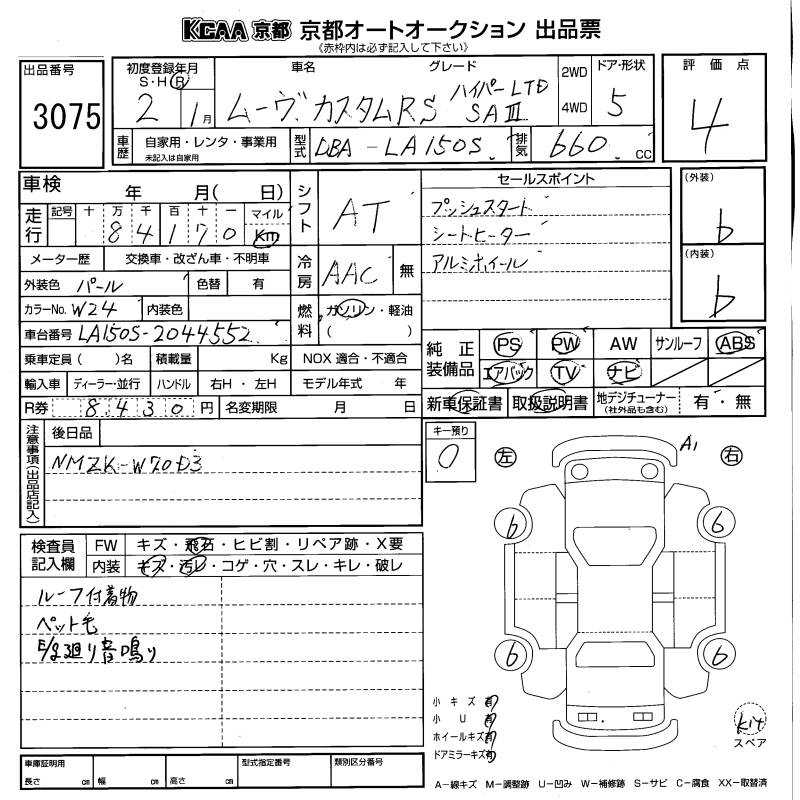 KCAA 京都 京都オートオークション 出品票
《赤枠内は必ず記入して下さい》
出品番号
3075
初度登録年月
S・H・R
2 1月
車名 グレード
ムーヴ カスタムRS ハイパーLTD SAⅢ
2WD
4WD
ドア・形状
5
評価点
4
車歴 自家用・レンタ・事業用
未記入は自家用
型式 DBA-LA150S
排気 660 cc
車検 年 月( 日)
走行 記号 十 万 千 百 十 一 マイル
84170 Km
メーター歴 交換車・改ざん車・不明車
外装色 パール 色替 有
カラーNo. W24 内装色
車台番号 LA150S-2044552
乗車定員 ( )名 積載量 Kg
輸入車 ディーラー・並行 ハンドル 右H・左H
R券 8430円 名変期限 月 日
シフト AT
冷房 AAC 無
燃料 ガソリン・軽油
( )
NOX 適合・不適合
モデル年式 年
セールスポイント
プッシュスタート
シートヒーター
アルミホイール
(外装)
b
(内装)
b
純正装備品 PS PW AW サンルーフ ABS
エアバック TV ナビ
新車保証書 取扱説明書 地デジチューナー
(社外品も含む) 有・無
注意事項(出品店記入)
後日品
NMZK-W70D3
キー預り
0
左 右
A1
6 6
6 6
検査員記入欄
FW キズ・飛石・ヒビ割・リペア跡・X要
内装 キズ・汚レ・コゲ・穴・スレ・キレ・破レ
ルーフ付着物
ペット毛
E/g廻り音鳴り
小キズ有
小U有
ホイールキズ有
ドアミラーキズ有
kit
スペア
車庫証明用
長さ cm 幅 cm 高さ cm
型式指定番号
類別区分番号
A―線キズ M―調整跡 U―凹み W―補修跡 S―サビ C―腐食 XX―取替済